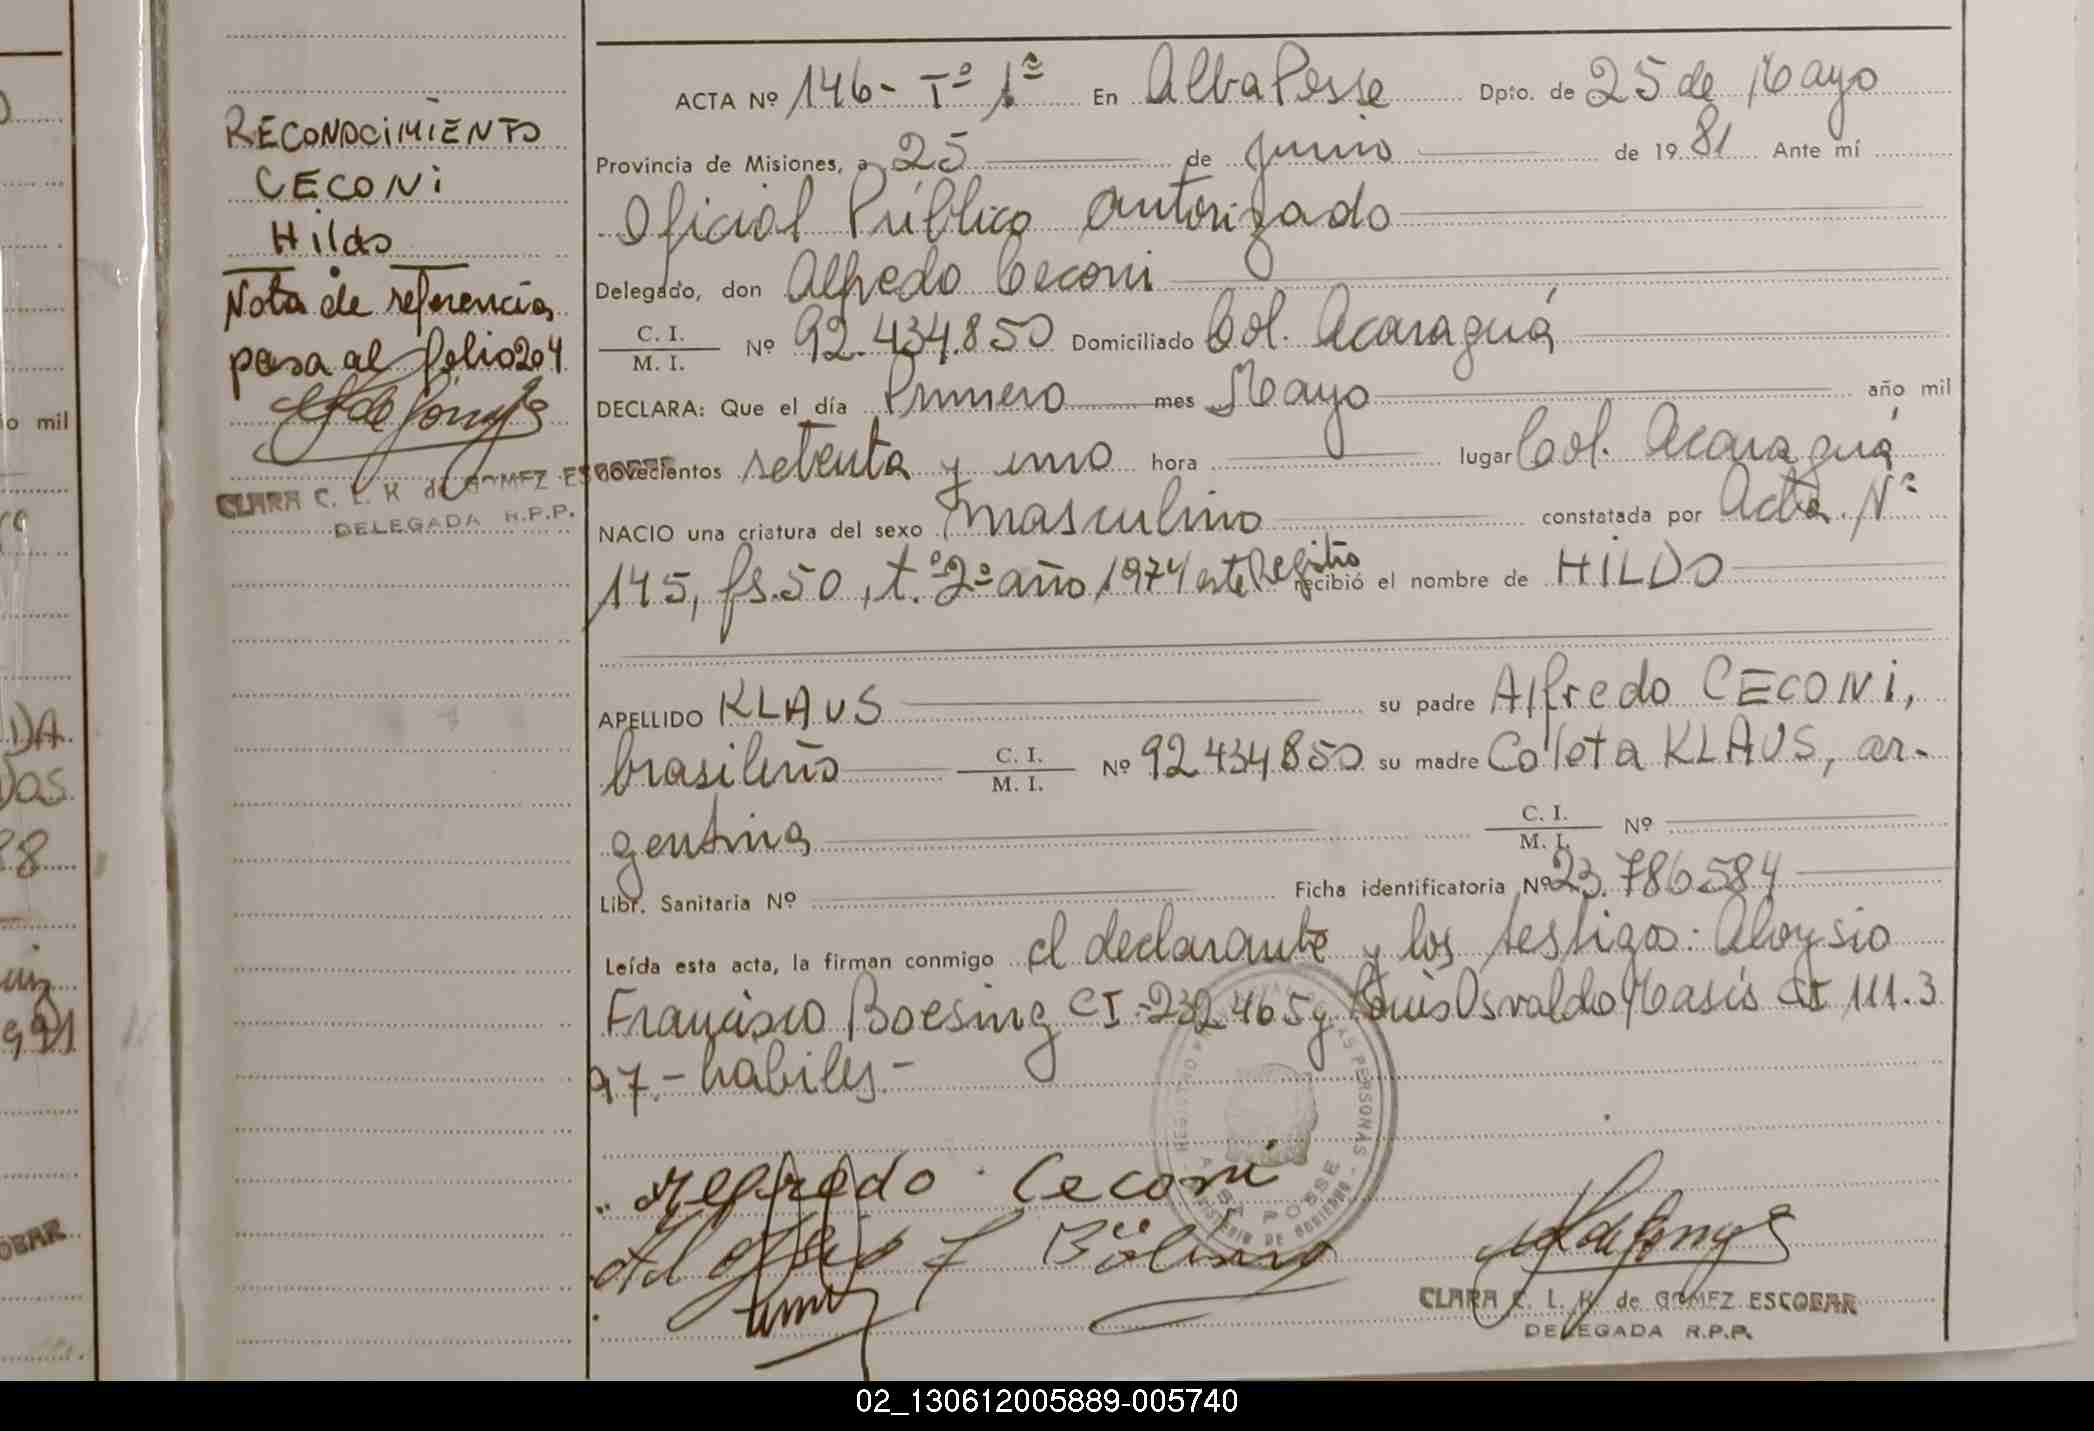 RECONOCIMIENTO
CECONi
Hildo
Nota de referencia
pasa al folio 204
CLARA C. L. K de GOMEZ ESCOBAR
DELEGADA R.P.P.
ACTA Nº 146- Tº 1º En Alba Posse Dpto. de 25 de Mayo
Provincia de Misiones, a 25 de junio de 1981 Ante mí
Oficial Público autorizado
Delegado, don Alfredo Ceconi
C. I.
M. I. Nº 92.434.850 Domiciliado Col. Acaraguá
DECLARA: Que el día Primero mes Mayo año mil
novecientos setenta y uno hora lugar Col. Acaraguá
NACIO una criatura del sexo masculino constatada por Acta Nº
145, fs. 50, t.º 2º año 1974 este Registro recibió el nombre de HILDO
APELLIDO KLAUS su padre Alfredo CECONi,
brasileño C. I.
M. I. Nº 92.434.850 su madre Coleta KLAUS, ar-
gentina C. I.
M. I. Nº
Libr. Sanitaria Nº Ficha identificatoria Nº 23.786.584
Leída esta acta, la firman conmigo el declarante y los testigos: Aloysio
Francisco Boesing CI-232.465 y Luis Osvaldo Masis CI 111.3
97.- habiles.-
Alfredo Ceconi
REGISTRO PROVINCIAL DE LAS PERSONAS
ALBA POSSE
MINISTERIO DE GOBIERNO
CLARA C. L. K de GOMEZ ESCOBAR
DELEGADA R.P.P.
o mil
DA
DOS
88
991
OBAR
02_130612005889-005740